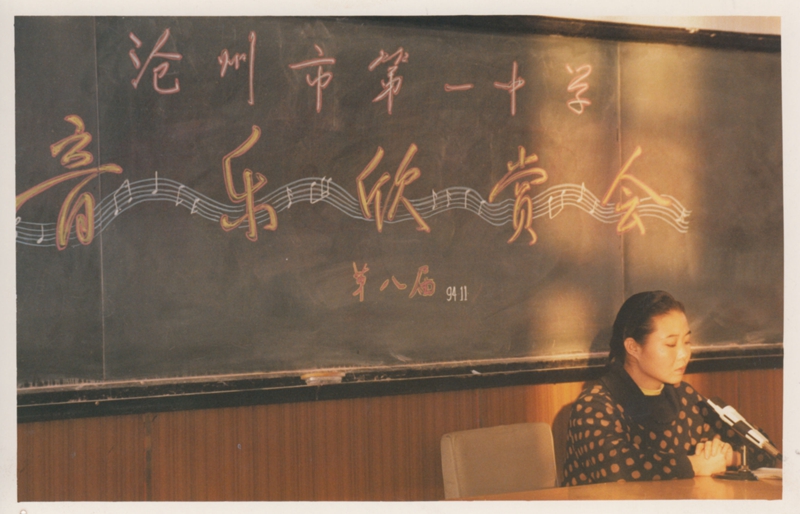 沧州市第一中学
音乐欣赏会
第八届 94 11